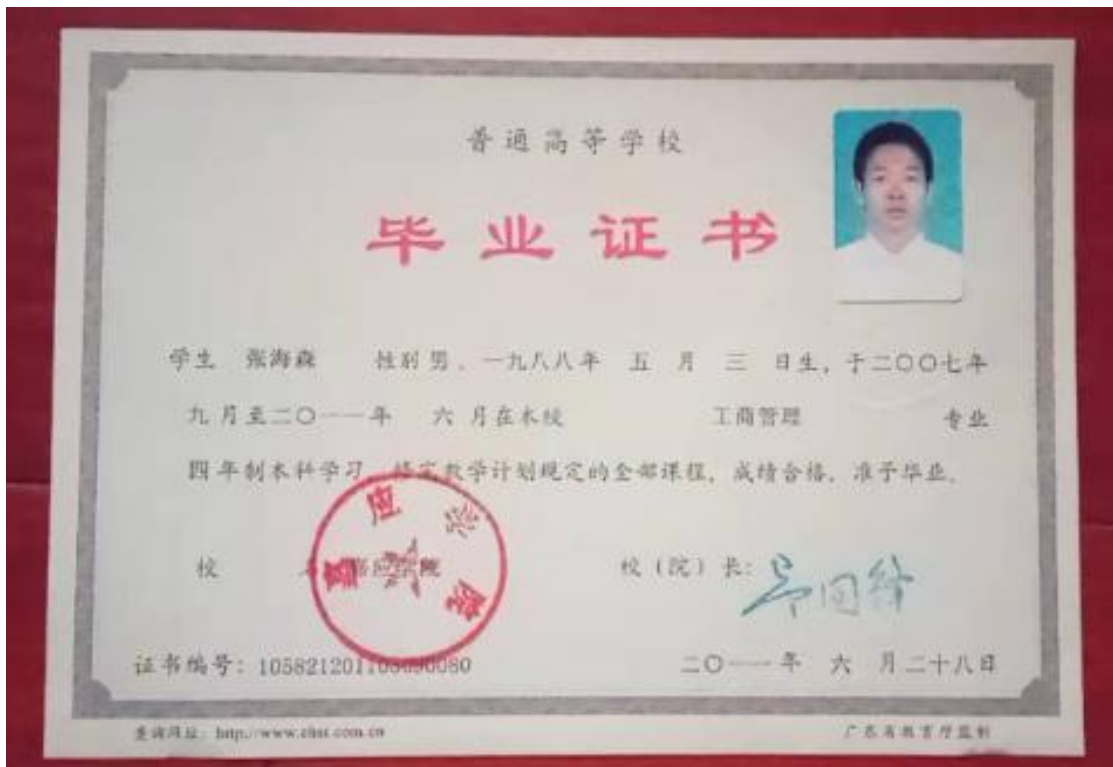 普通高等学校
毕业证书
学生 张海森 性别 男，一九八八年 五 月 三 日生，于二〇〇七年
九月至二〇一一年 六 月在本校 工商管理 专业
四年制本科学习，修完教学计划规定的全部课程，成绩合格，准予毕业。
嘉应学院
校 名：嘉应学院 校（院）长：
证书编号：105821201105 0080 二〇一一年 六 月二十八日
查询网址：http://www.chsi.com.cn 广东省教育厅监制